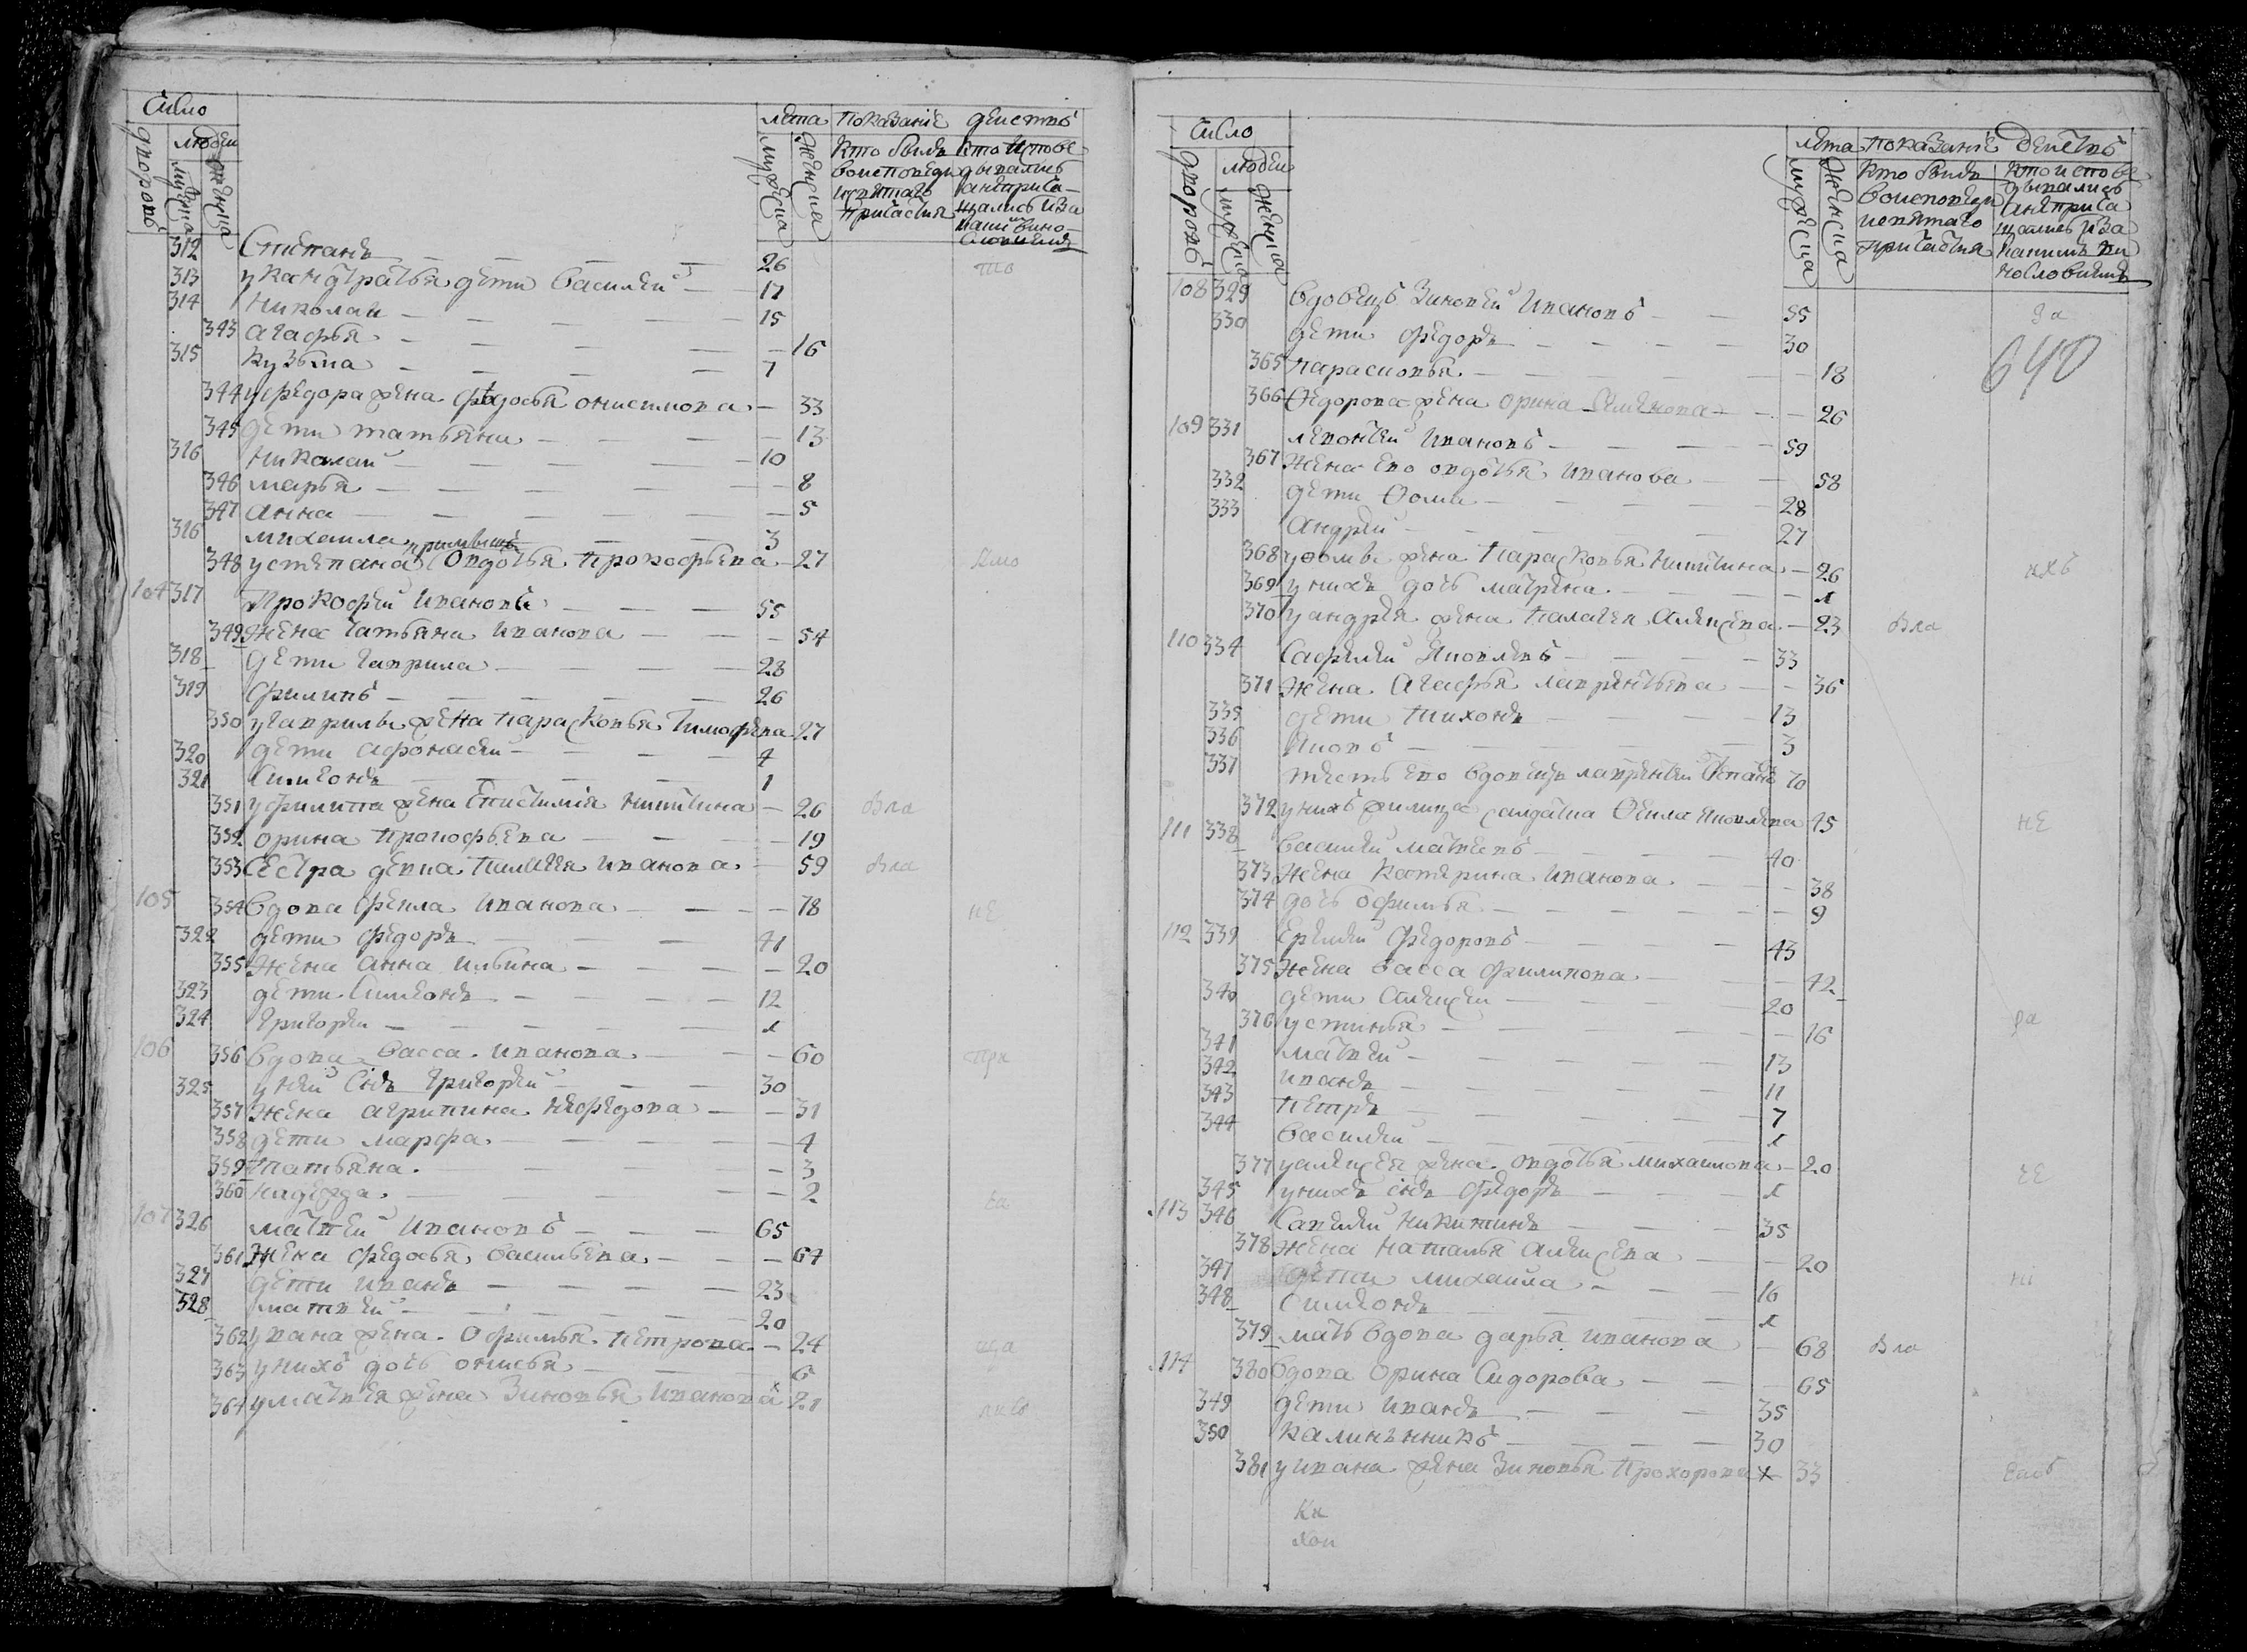 Число
дворовъ
людеи
мужеска
женска
лета показание деиствъ
мужеска
женска
кто были воисповеди исвятаго причастия
кто испове дывались анеприча щались иза каким вино словиемъ
312 Степанъ 26 то
313 у Кандратья дети василеи 17
314 Николаи 15
343 агафья 16
315 кузьма 7
344 у федора жена федосья онисимова 33
345 дети татьяна 13
316 Николаи 10
346 марья 8
347 анна 5
316 михаила 3
348 у степана овдотья прокофьева 27 ямо
104 317 Прокофеи ивановъ 55
349 жена татьяна иванова 54
318 дети гаврила 28
319 филипъ 26
350 у гаврилы жена парасковья тимофеева 27
320 дети афонасеи 4
321 симеонъ 1
351 у филипа жена епистимия никитина 26 вла
352 орина прокофьева 19
353 сестра девка пилагея иванова 59 вла
105 354 вдова фекла иванова 78 не
322 дети федоръ 41
355 жена анна ильина 20
323 дети симеонъ 12
324 григореи 1
106 356 вдова васса иванова 60 при
325 у неи снъ григореи 30
357 жена агрипина нефедова 31
358 дети марфа 4
359 татьяна 3
360 надежда 2 га
107 326 матвеи ивановъ 65
361 жена федосья васильева 64
327 дети иванъ 23
328 матвеи 20
362 у ивана жена офимья петрова 24
363 у нихъ дочь онисья 6
364 у матвея жена зиновья иванова 21
Число
дворовъ
людеи
мужеска
женска
лета показание деиствъ
мужеска
женска
кто были воисповеди исвятаго причастия
кто испове дывались анеприча щались иза каким ви нословиемъ
108 329 вдовецъ зиновеи ивановъ 55 да
330 дети федоръ 30
640
365 парасковья 18
366 федорова жена орина семенова 26
109 331 левонтеи ивановъ 59
367 жена ево овдотья иванова 58
332 дети фома 28
333 андреи 27
368 у фомы жена парасковья никитина 26
369 у нихъ дочь матрена 1
370 у андрея жена палагея алексеева 23 вла
110 334 савелеи яковлевъ 33
371 жена агафья лаврентьева 36
335 дети тихонъ 13
336 яковъ 3
337 тесть ево вдовецъ лаврентеи степанов 70
372 у нихъ жилица салдатка фекла яковлева 45 не
111 338 василеи матвеевъ 40
373 жена катерина иванова 38
374 дочь офимья 9
112 339 еремеи федоровъ 43
375 жена васса филипова 42
340 дети алексеи 20
376 устинья 16 ра
341 матвеи 13
342 иванъ 11
343 петръ 7
344 василеи 1
377 у алексея жена овдотья михаилова 20
345 у нихъ снъ федоръ 1
113 346 савелеи никитинъ 35
378 жена наталья алексеева 20
347 дети михаила 16
348 симеонъ 1
379 мать вдова дарья иванова 68 вла
114 380 вдова орина сидорова 65
349 дети иванъ 35
350 калинънникъ 30
381 у ивана жена зиновья прохорова 33